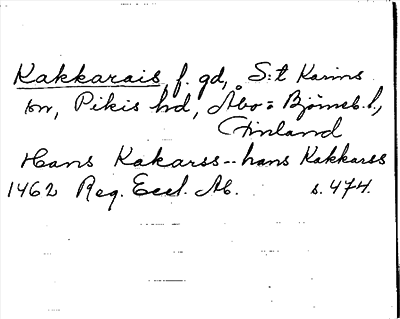 Kakkarais, f. gd, S:t Karins
sn, Pikis hd, Åbo = Björneb. l.,
Finland
Hans Kakarss -- hans Kakkarss
1462 Reg. Eccl. Ab. s. 474.